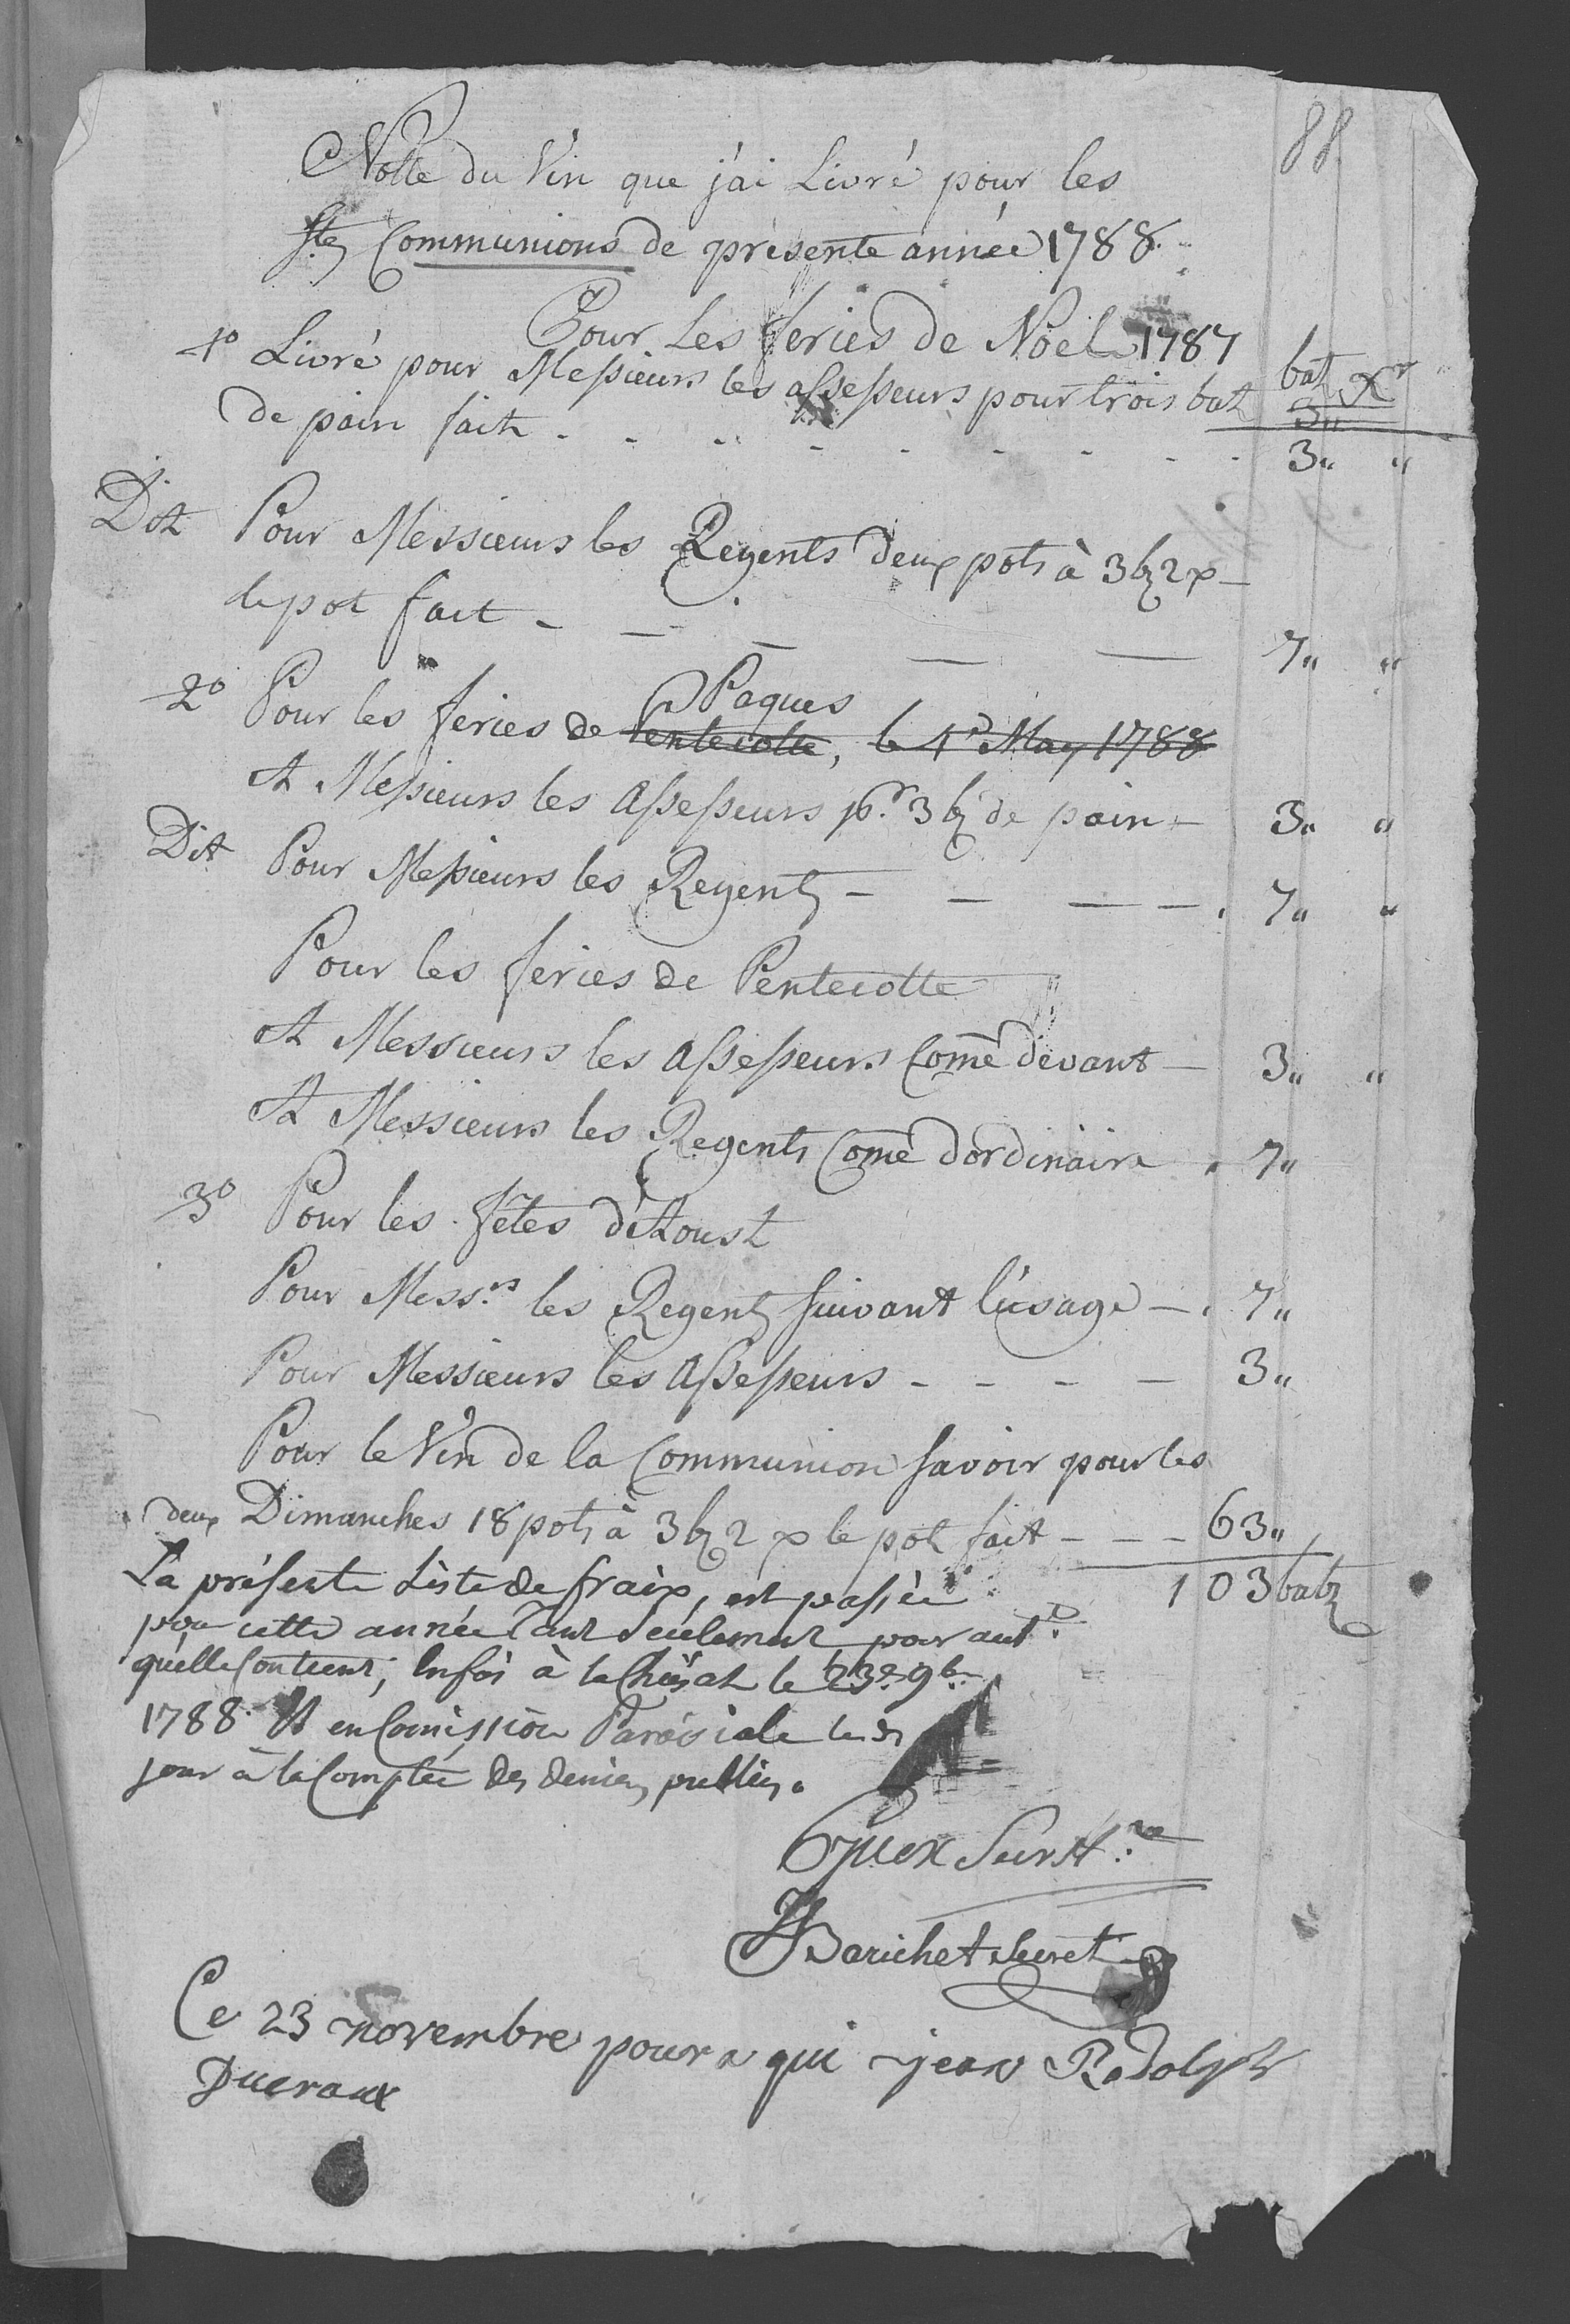 88
Notte du Vin que j'ai Livré pour les
Stes Communions de présente année 1788.
Pour Les feries de Noel 1787
1º Livré pour Messieurs les assesseurs pour trois batz
batz Xr
3"
de pain fait - - - - - - - - 3" "
Dit Pour Messieurs les Regents deux pots à 3 bz 2 x
le pot fait - - - - - 7" "
Paques
2º Pour les feries de Pentecotte, le 1er May 1788
A Messieurs les assesseurs pr. 3 bz de pain - 3" "
Dit Pour Messieurs les Regents - - - - 7" "
Pour les feries de Pentecotte
A Messieurs les assesseurs Come devant - 3" "
A Messieurs les Regents Come d'ordinaire . 7"
3º Pour les fêtes d'Aoust
Pour Messrs les Regents suivant l'usage - . 7"
Pour Messieurs les assesseurs - - - - 3"
Pour le Vin de la Communion savoir pour les
deux Dimanches 18 pots à 3 bz 2 x le pot fait - - - 63"
103 batz
La présente Liste de fraix, est passée
pour cette année tant seulement pour autt.
qu'elle Contient, En foi à la le 23e 9bre
1788. Et en Comission Paroisiale le dt
jour à la Comptée des deniers publics.
Guex Secrétre
Barichet Secret
Ce 23 novembre pour a qui jean Rodolph
Ducraux